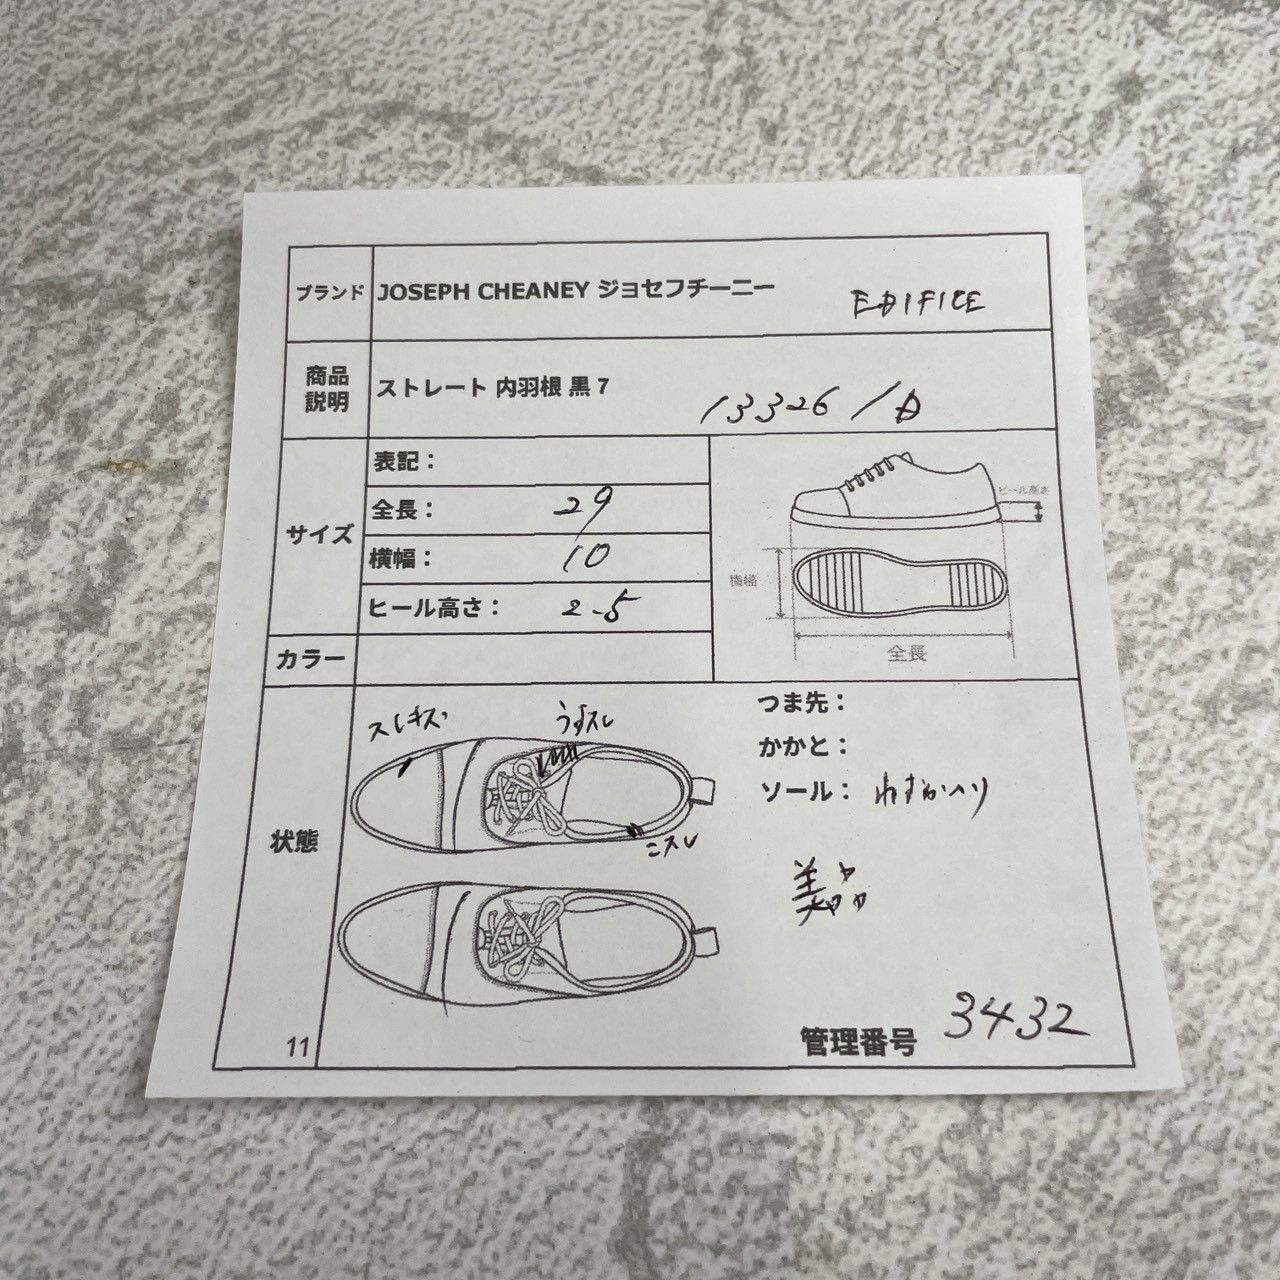 ブランド JOSEPH CHEANEY ジョセフチーニー EDIFICE
商品説明 ストレート 内羽根 黒 7 13326 / D
サイズ
表記：
全長： 29
横幅： 10
ヒール高さ： 2.5
ヒール高さ
横幅
全長
カラー
状態
スレキズ
うすスレ
こスレ
つま先：
かかと：
ソール： わずかヘリ
美品
11
管理番号 3432